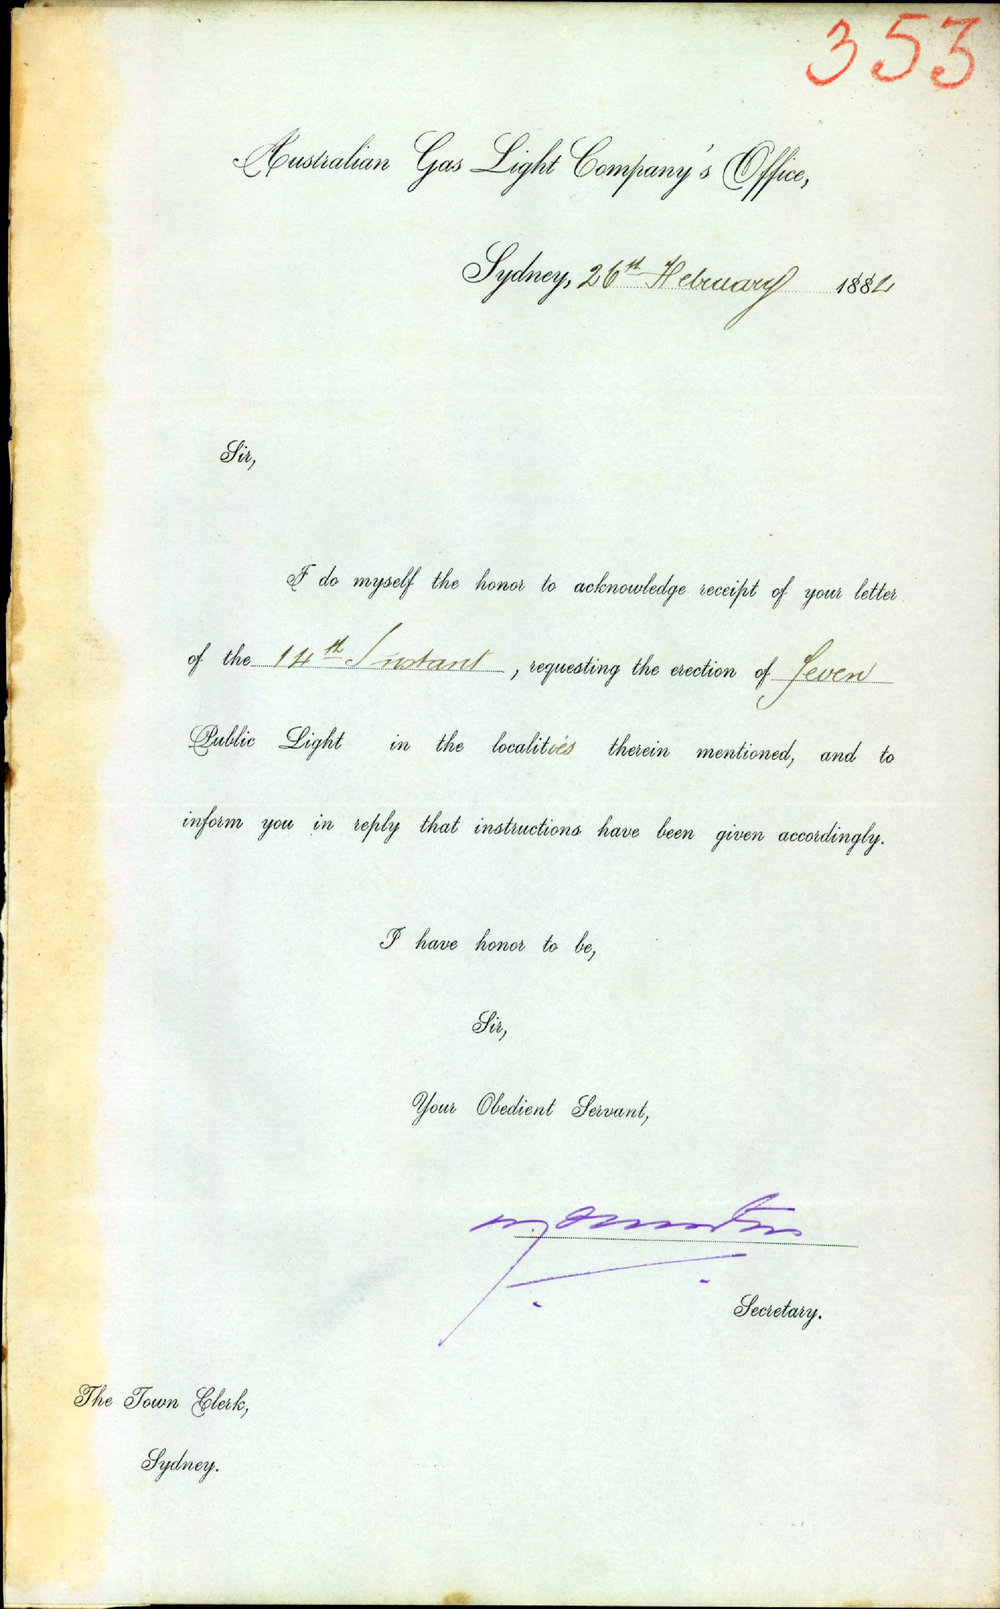 353
Australian Gas Light Company's Office,
Sydney, 26th February 1884
Sir,
I do myself the honor to acknowledge receipt of your letter
of the 14th Instant, requesting the erection of Seven
Public Light in the localities therein mentioned, and to
inform you in reply that instructions have been given accordingly.
I have honor to be,
Sir,
Your Obedient Servant,
Secretary.
The Town Clerk,
Sydney.